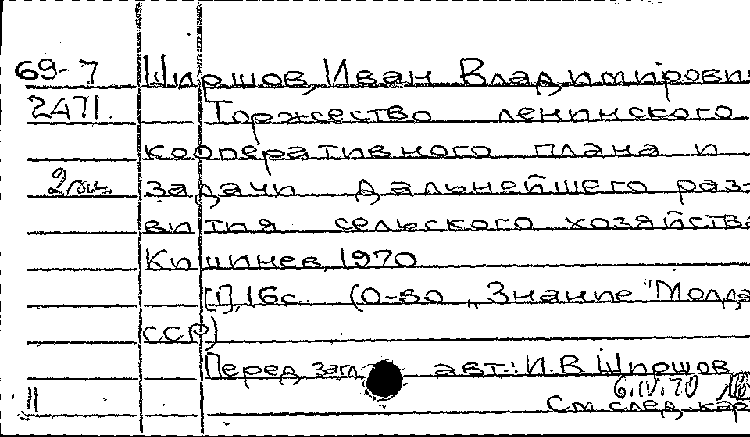 69-7 Ширшов, Иван Владимирови
2471. Торжество ленинского
кооперативного плана и
задачи дальнейшего раз-
вития сельского хозяйства
Кишинев, 1970
[1], 16с. (О-во „Знание" Молда
ССР)
Перед загл. авт.: И.В. Ширшов
6.IV.70
11 См. след. кар